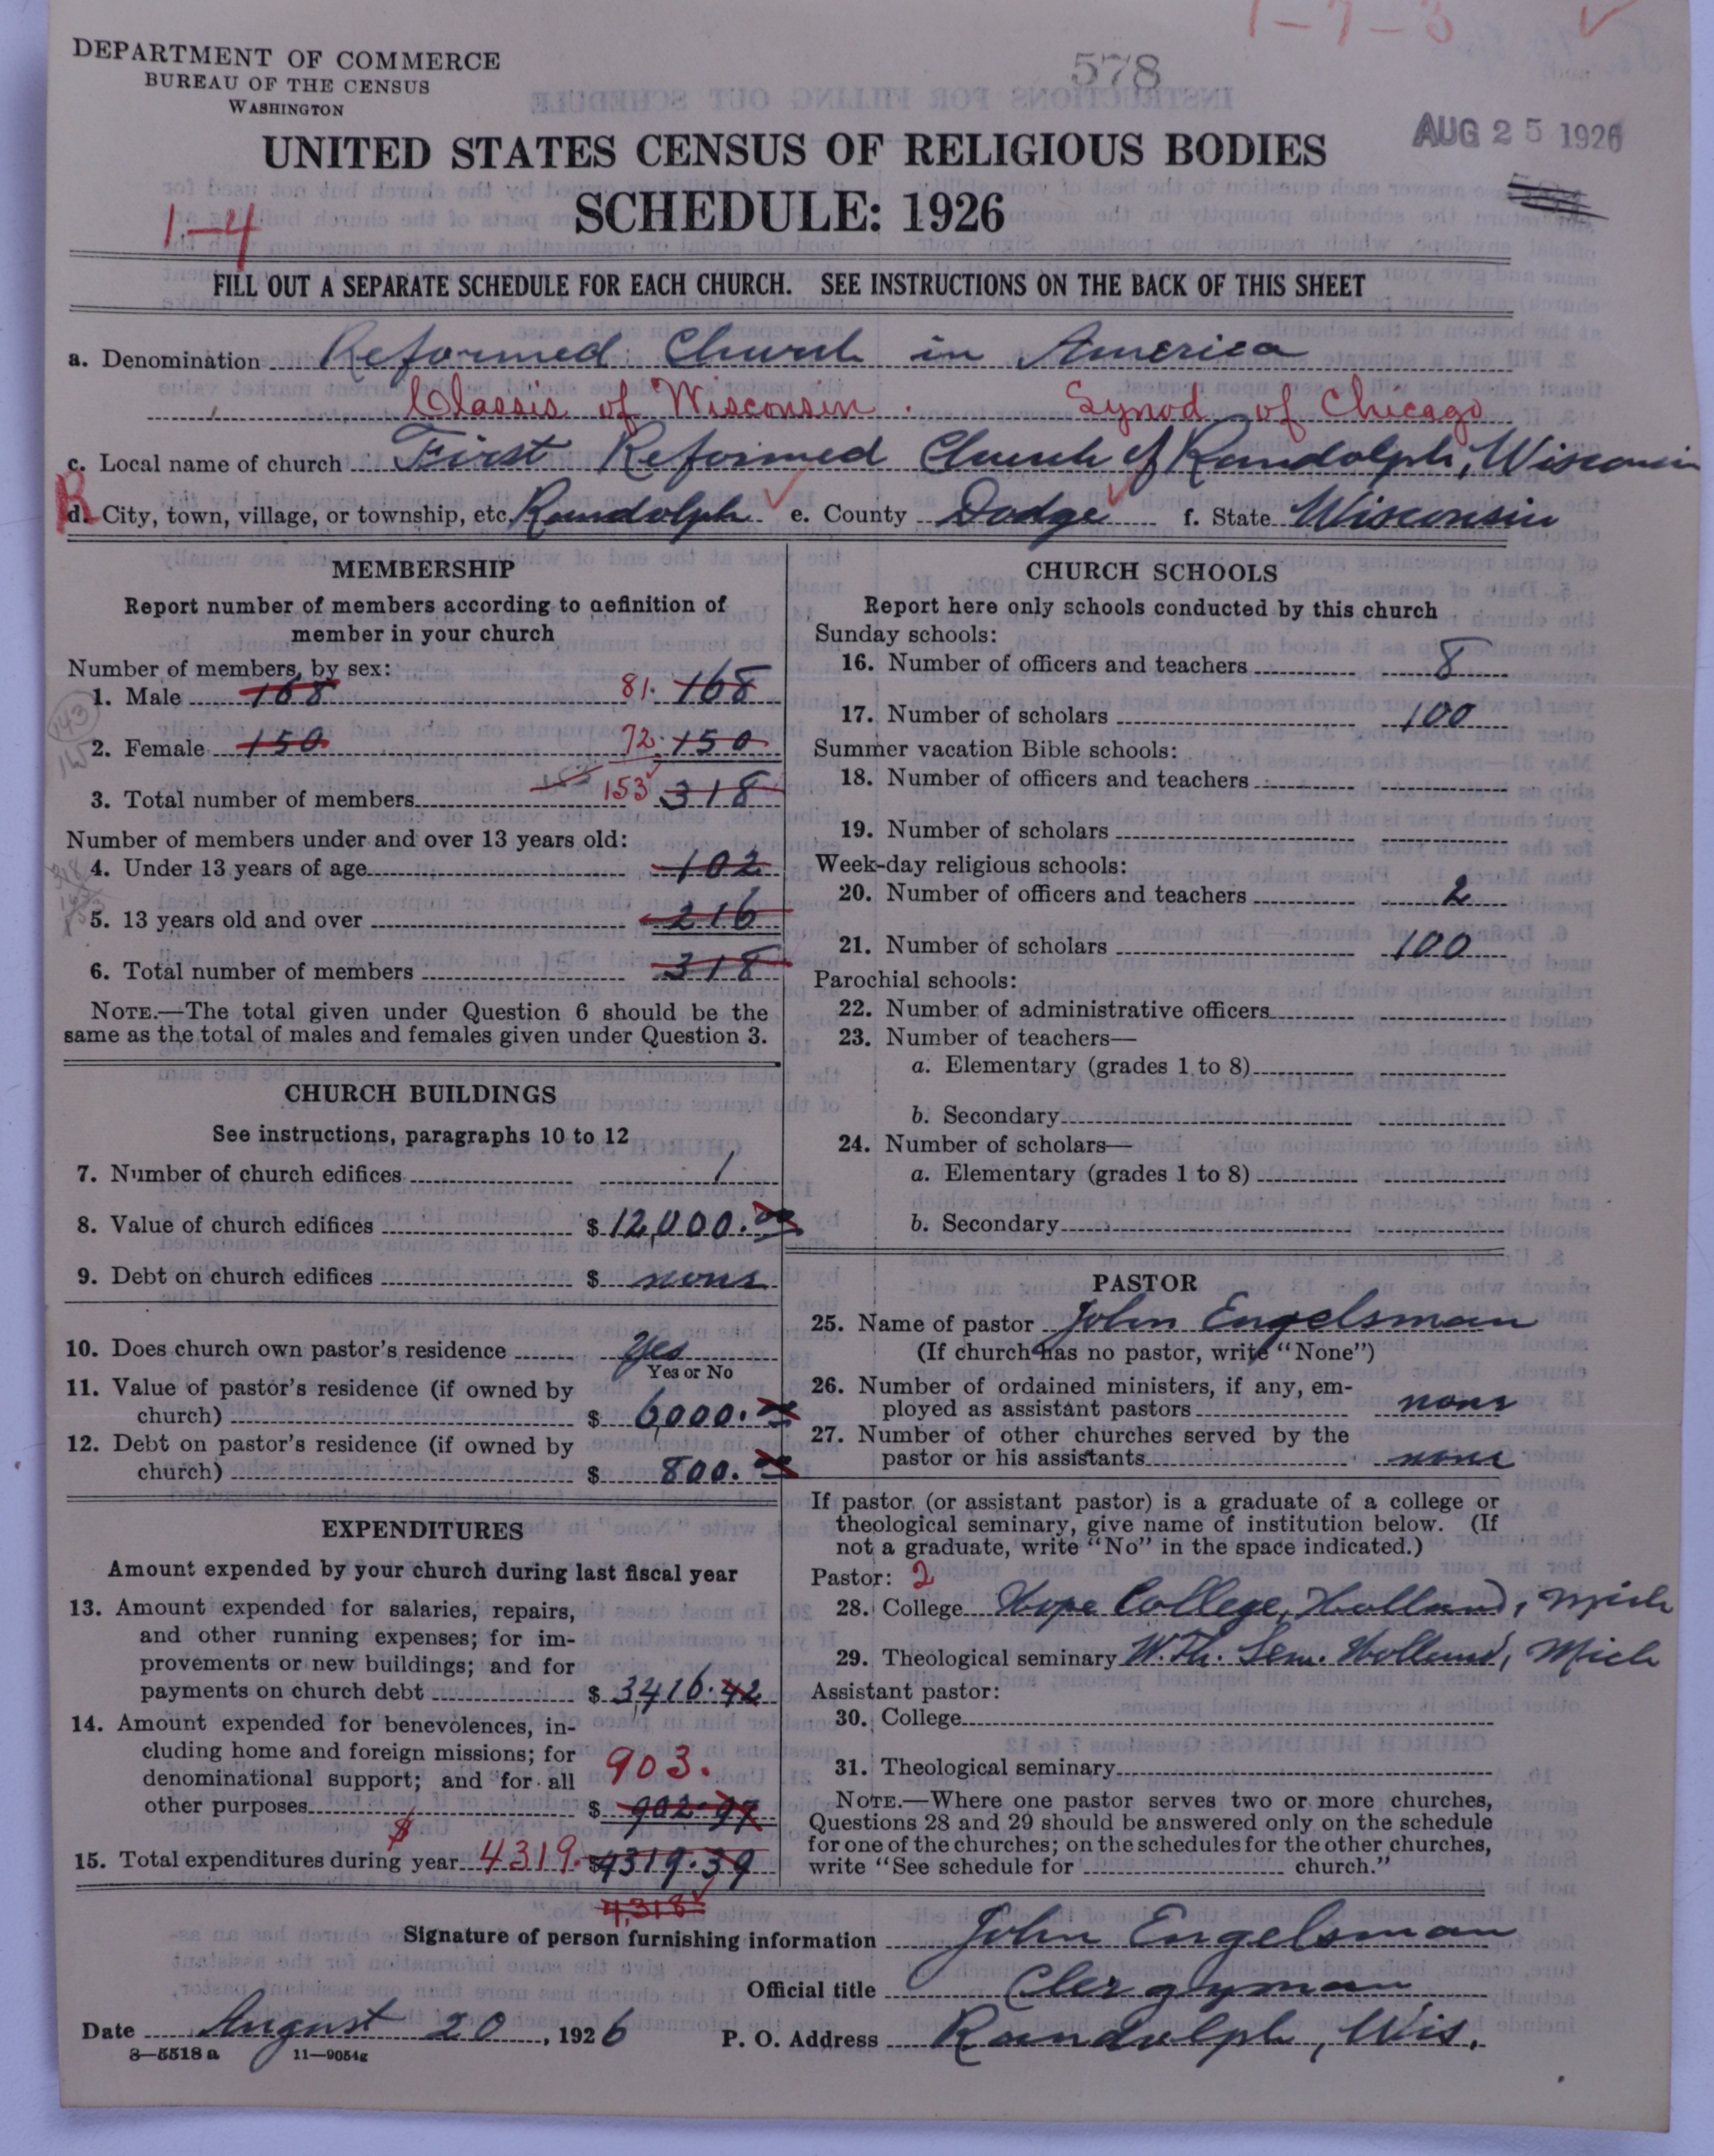 1-7-3
DEPARTMENT OF COMMERCE
BUREAU OF THE CENSUS
WASHINGTON
578
AUG 25 1926
UNITED STATES CENSUS OF RELIGIOUS BODIES
SCHEDULE: 1926
1-4
FILL OUT A SEPARATE SCHEDULE FOR EACH CHURCH. SEE INSTRUCTIONS ON THE BACK OF THIS SHEET
a. Denomination Reformed Church in America
Classis of Wisconsin. Synod of Chicago
c. Local name of church First Reformed Church of Randolph, Wisconsin
R
d. City, town, village, or township, etc. Randolph e. County Dodge f. State Wisconsin
MEMBERSHIP
Report number of members according to definition of
member in your church
Number of members, by sex:
1. Male 168 81. 168
143
2. Female 150 72. 150
3. Total number of members 153 318
Number of members under and over 13 years old:
4. Under 13 years of age 102
5. 13 years old and over 216
6. Total number of members 318
NOTE.—The total given under Question 6 should be the
same as the total of males and females given under Question 3.
CHURCH BUILDINGS
See instructions, paragraphs 10 to 12
7. Number of church edifices 1
8. Value of church edifices $ 12,000.00
9. Debt on church edifices $ none
10. Does church own pastor's residence Yes
Yes or No
11. Value of pastor's residence (if owned by
church) $ 6,000.00
12. Debt on pastor's residence (if owned by
church) $ 800.00
EXPENDITURES
Amount expended by your church during last fiscal year
13. Amount expended for salaries, repairs,
and other running expenses; for im-
provements or new buildings; and for
payments on church debt $ 3,416.42
14. Amount expended for benevolences, in-
cluding home and foreign missions; for
denominational support; and for all 903.
other purposes $ 902.97
15. Total expenditures during year $ 4319. $4319.39
4,318
CHURCH SCHOOLS
Report here only schools conducted by this church
Sunday schools:
16. Number of officers and teachers 8
17. Number of scholars 100
Summer vacation Bible schools:
18. Number of officers and teachers
19. Number of scholars
Week-day religious schools:
20. Number of officers and teachers 2
21. Number of scholars 100
Parochial schools:
22. Number of administrative officers
23. Number of teachers—
a. Elementary (grades 1 to 8)
b. Secondary
24. Number of scholars—
a. Elementary (grades 1 to 8)
b. Secondary
PASTOR
25. Name of pastor John Engelsman
(If church has no pastor, write "None")
26. Number of ordained ministers, if any, em-
ployed as assistant pastors none
27. Number of other churches served by the
pastor or his assistants none
If pastor (or assistant pastor) is a graduate of a college or
theological seminary, give name of institution below. (If
not a graduate, write "No" in the space indicated.)
Pastor: 2
28. College Hope College, Holland, Mich
29. Theological seminary W. Th. Sem. Holland, Mich
Assistant pastor:
30. College
31. Theological seminary
NOTE.—Where one pastor serves two or more churches,
Questions 28 and 29 should be answered only on the schedule
for one of the churches; on the schedules for the other churches,
write "See schedule for church."
Signature of person furnishing information John Engelsman
Official title Clergyman
Date August 20, 1926 P. O. Address Randolph, Wis.
8—5518 a 11—9054g